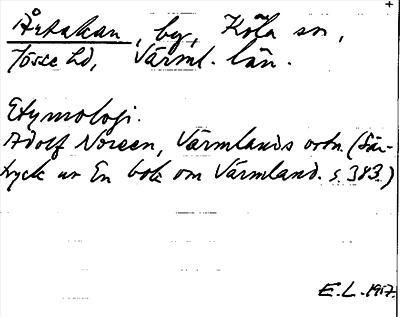 Årtakan, by, Köla sn,
Jösse hd, Värml. län.
Etymologi.
Adolf Noreen, Värmlands ortn. (Sär-
tryck ur En bok om Värmland. s. 383.)
E. L. 1957.